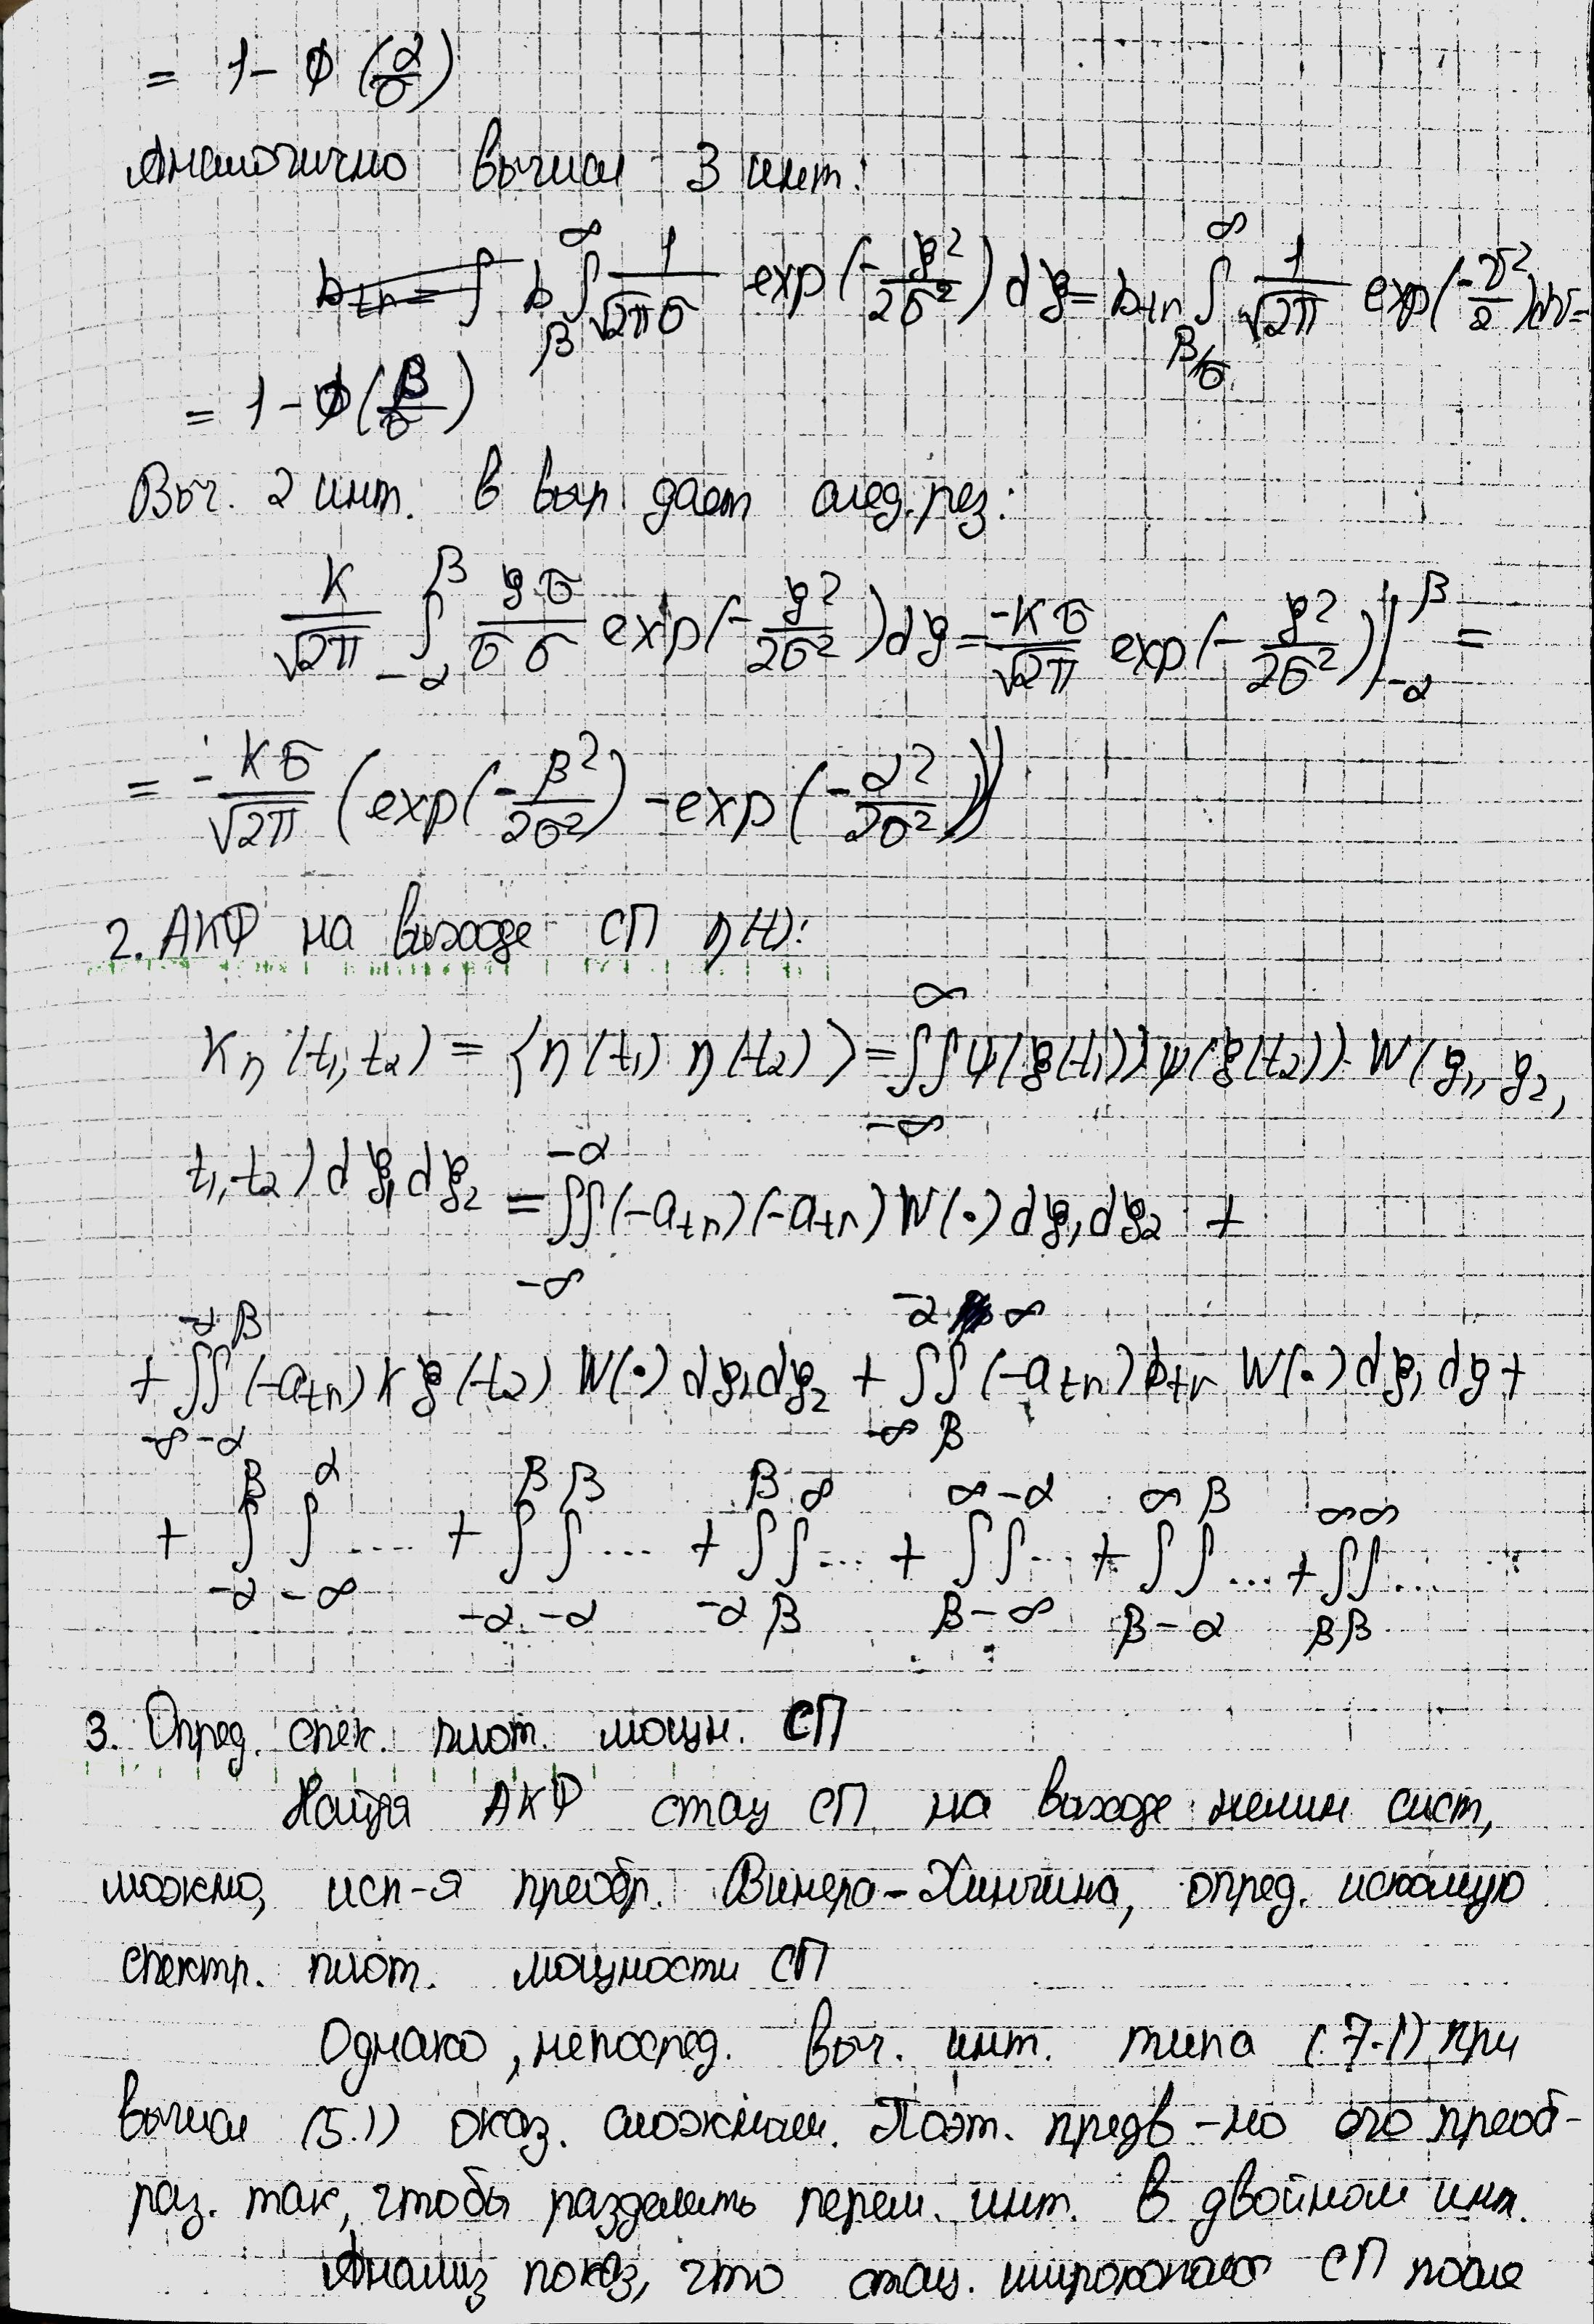 = 1 - Ф(α/σ)
Аналогично вычисл 3 инт.:
b ∫_β^∞ 1/√2πσ exp(-ξ²/2σ²) dξ = b₊ₙ ∫_{β/σ}^∞ 1/√2π exp(-v²/2)dv =
= 1 - Ф(β/σ)
Выч. 2 инт. в выр дает след. рез:
K/√2π ∫_{-α}^β ξσ/σσ exp(-ξ²/2σ²)dξ = -Kσ/√2π exp(-ξ²/2σ²)|_{-α}^β =
= -Kσ/√2π (exp(-β²/2σ²) - exp(-α²/2σ²))
2. АКФ на выходе СП η(t):
Kη(t₁,t₂) = <η(t₁) η(t₂)> = ∫∫_{-∞}^∞ ψ(ξ(t₁)) ψ(ξ(t₂)) · W(ξ₁, ξ₂,
t₁,t₂) dξ₁dξ₂ = ∫∫_{-∞}^{-α} (-a₊ₙ)(-a₊ₙ) W(·) dξ₁dξ₂ +
+ ∫_{-∞}^{-α}∫_{-α}^β (-a₊ₙ) K ξ(t₂) W(·) dξ₁dξ₂ + ∫_{-∞}^{-α}∫_β^∞ (-a₊ₙ) b₊ₙ W(·) dξ₁ dξ +
+ ∫_{-α}^β ∫_{-∞}^α .... + ∫_{-α}^β ∫_{-α}^β ... + ∫_{-α}^β ∫_β^∞ ... + ∫_β^∞ ∫_{-∞}^{-α} ... + ∫_β^∞ ∫_{-α}^β ... + ∫_β^∞ ∫_β^∞ ...
3. Опред. спек. плот. мощн. СП
Найдя АКФ стац СП на выходе нелин сист,
можно, исп-я преобр. Винера-Хинчина, опред. искомую
спектр. плот. мощности СП
Однако, непосред. выч. инт. типа (7.1) при
вычисл (5.1) оказ. сложным. Поэт. предв-но его преоб-
раз. так, чтобы разделить перем. инт. в двойном инт.
Анализ показ, что стац. СП после